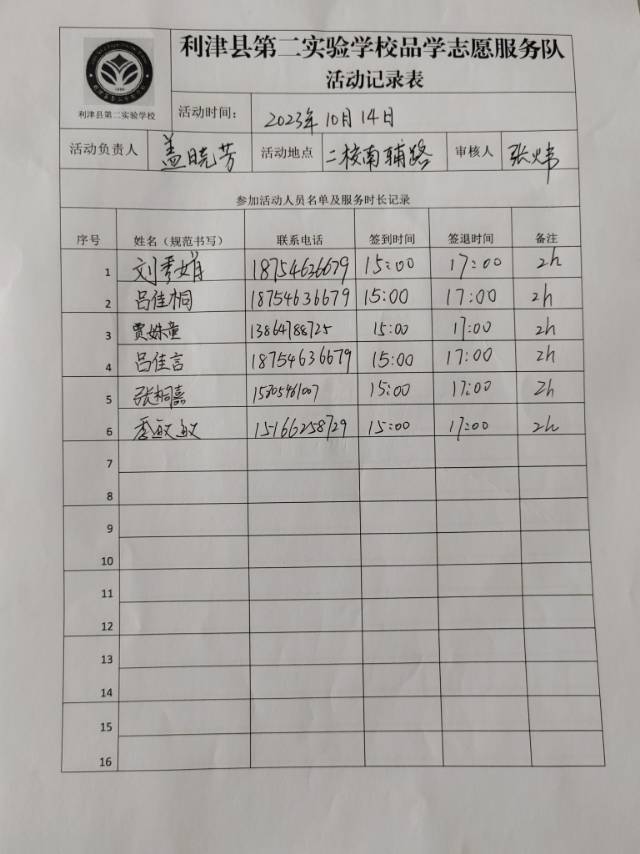 利津县第二实验学校品学志愿服务队
活动记录表
利津县第二实验学校
活动时间： 2023年10月14日
活动负责人 盖晓芳 活动地点 二校南辅路 审核人 张炜
参加活动人员名单及服务时长记录
序号 姓名（规范书写） 联系电话 签到时间 签退时间 备注
1 刘秀娟 18754636679 15:00 17:00 2h
2 吕佳桐 18754636679 15:00 17:00 2h
3 贾姝童 13864788725 15:00 17:00 2h
4 吕佳言 18754636679 15:00 17:00 2h
5 张桐嘉 15805461007 15:00 17:00 2h
6 季敏敏 15166258729 15:00 17:00 2h
7
8
9
10
11
12
13
14
15
16